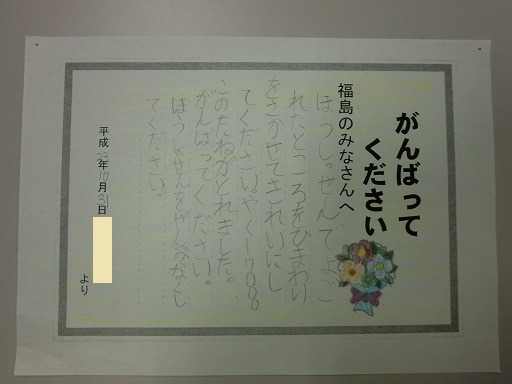 がんばって
ください
福島のみなさんへ
ほうしゃせんでよご
れたところをひまわり
をさかせてきれいにし
てください。やく1700こ
このたねがとれました。
がんばってください。
ほうしゃせんをぜんぶなくし
てください。
平成23年10月31日
より